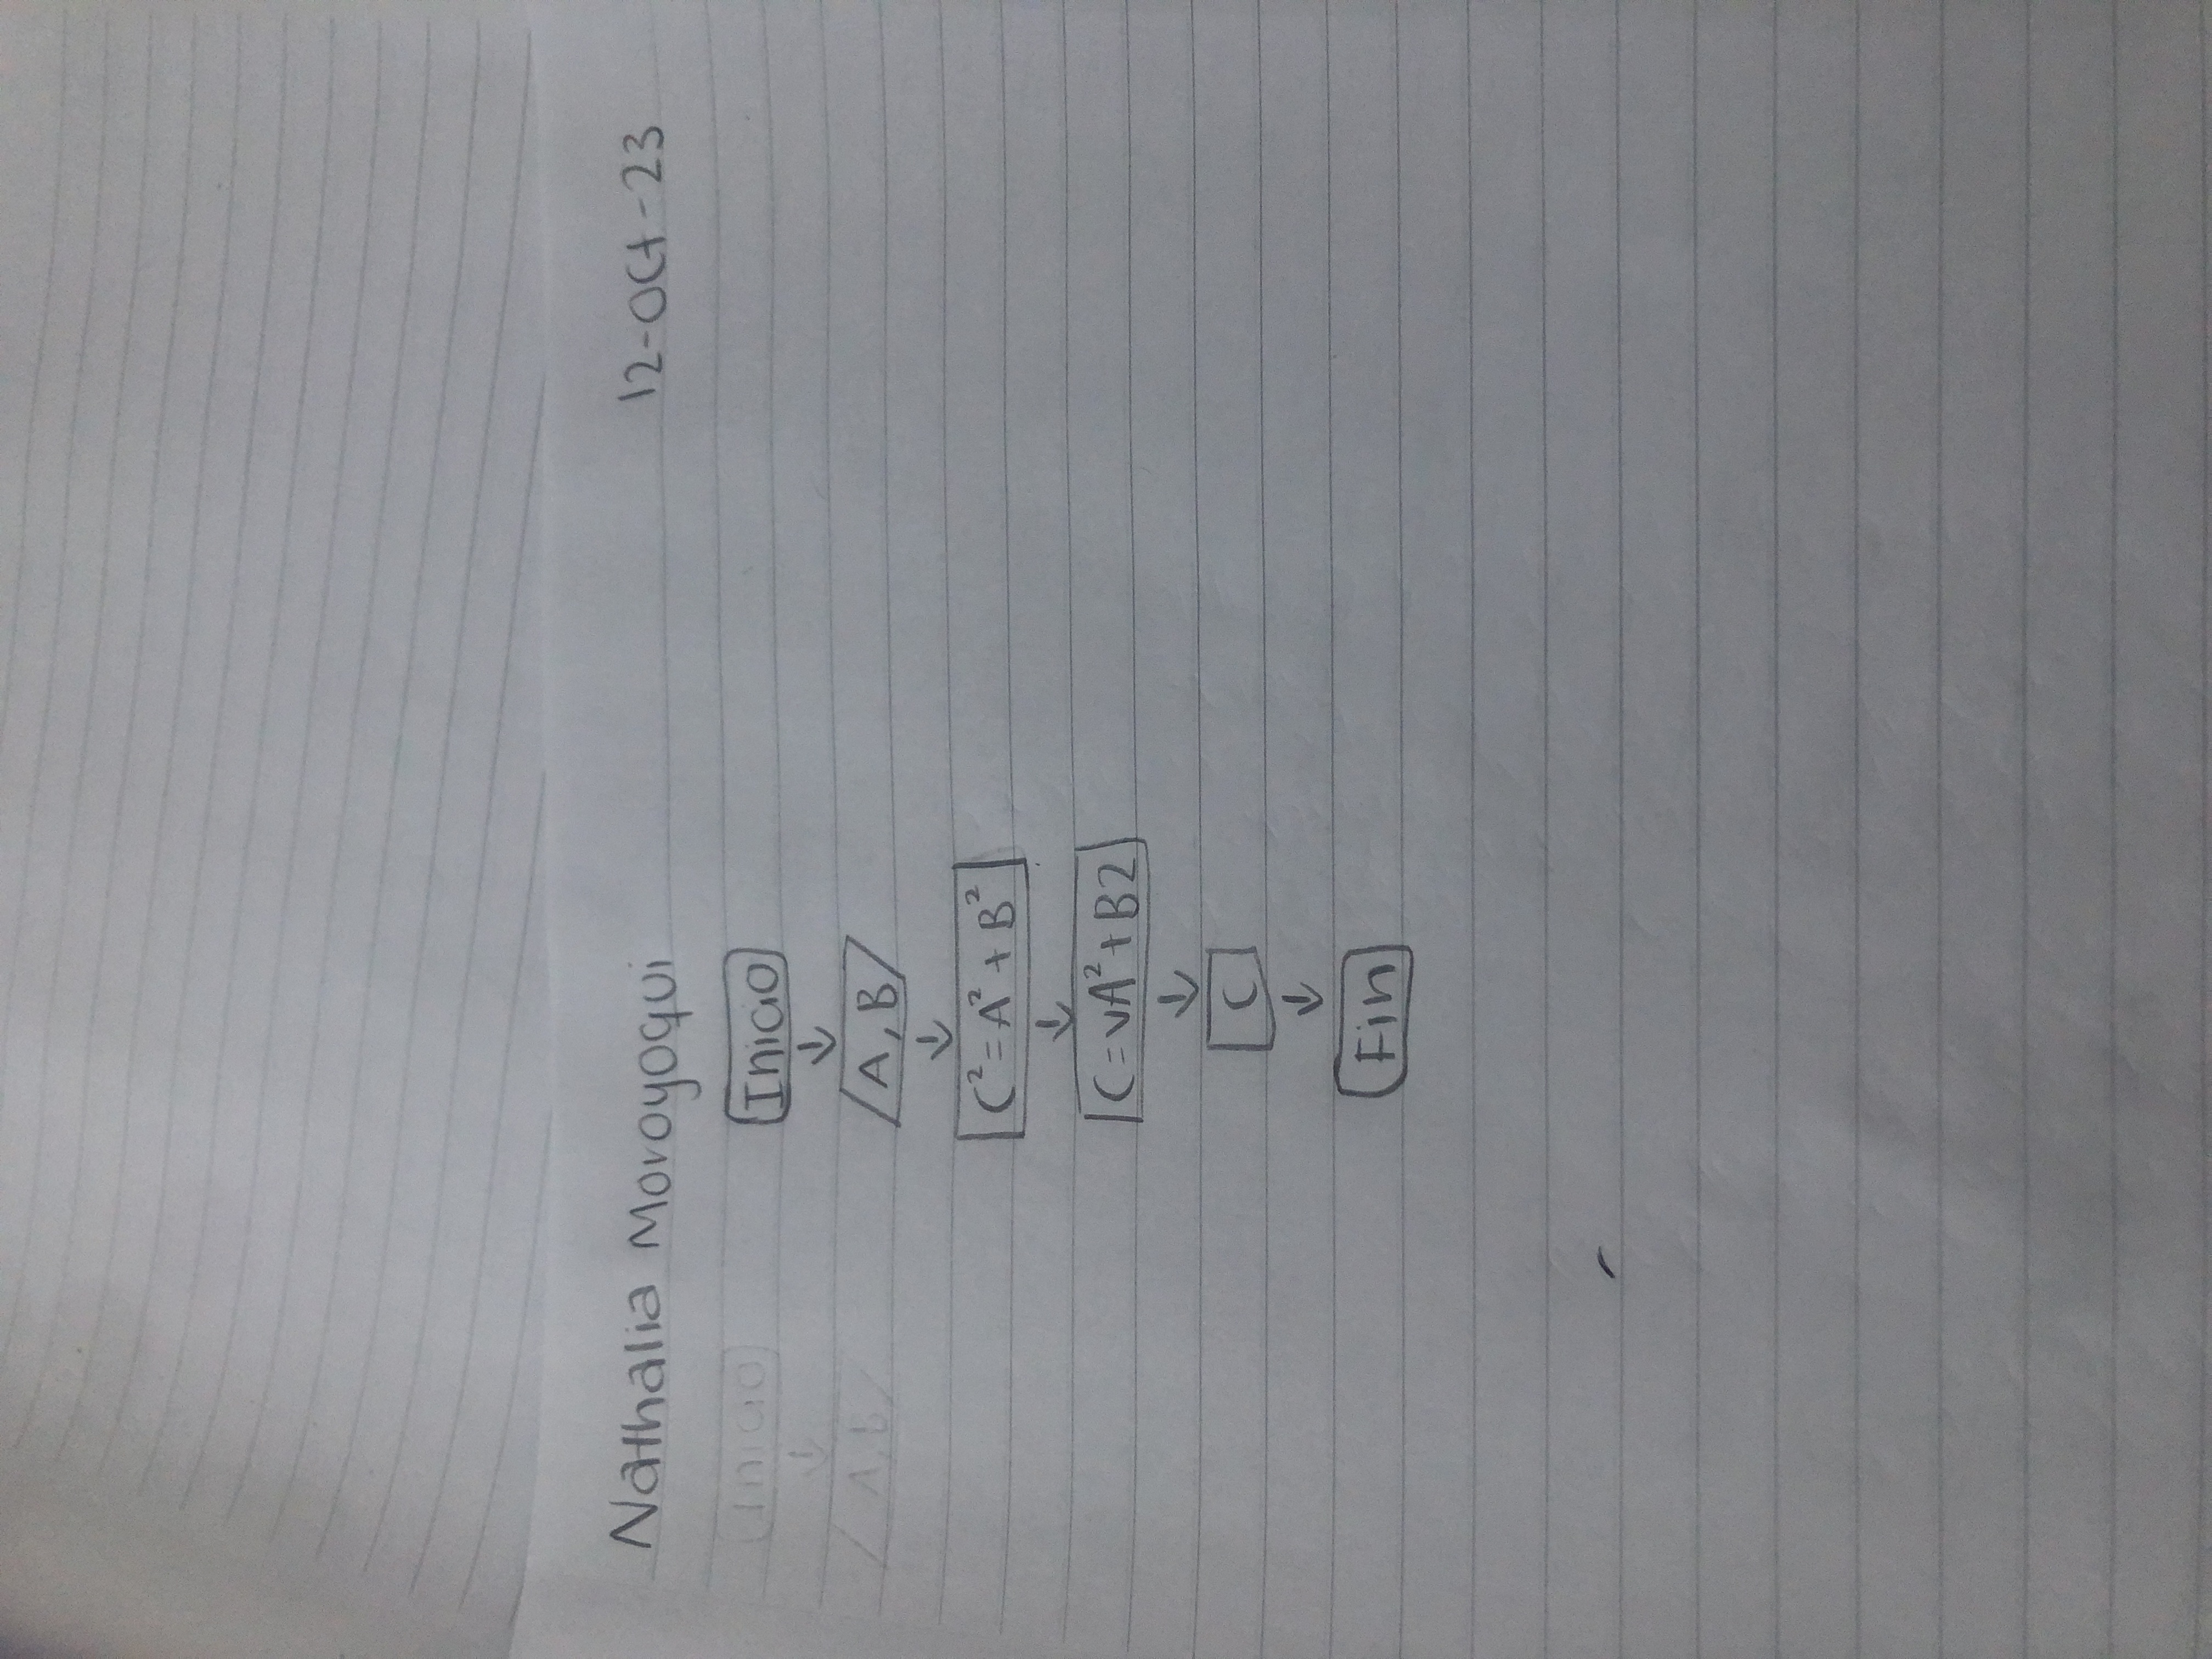 Nathalia Moroyoqui 12-Oct-23
Inicio Inicio
↓ ↓
A,B A,B
↓
C²=A²+B²
↓
C=√A²+B2
↓
C
↓
Fin